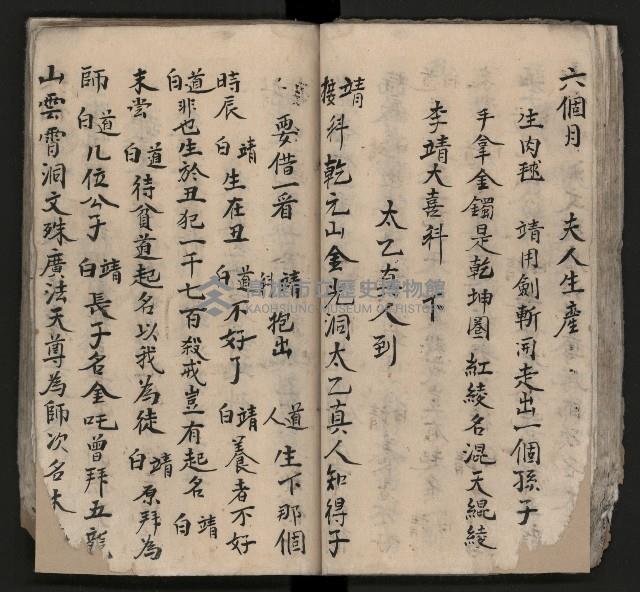 六個月　夫人生產
生肉毬　靖用劍斬開走出一個孫子
手拿金鐲是乾坤圈 紅綾名混天緄綾
李靖大喜科　下
太乙真人到
靖接科 乾元山金光洞太乙真人知得子
要借一看　靖科 抱出　道人 生下那個
時辰　靖白 生在丑　道白 不好了　靖白 養者不好
道白 非也生於丑犯一千七百殺戒豈有起名　靖白
末嘗　道白 待貧道起名以我為徒　靖白 原拜為
師　道白 几位公子　靖白 長子名金吒曾拜五龍
山雲霄洞文殊廣法天尊為師次名木
高雄市立歷史博物館
KAOHSIUNG MUSEUM OF HISTORY